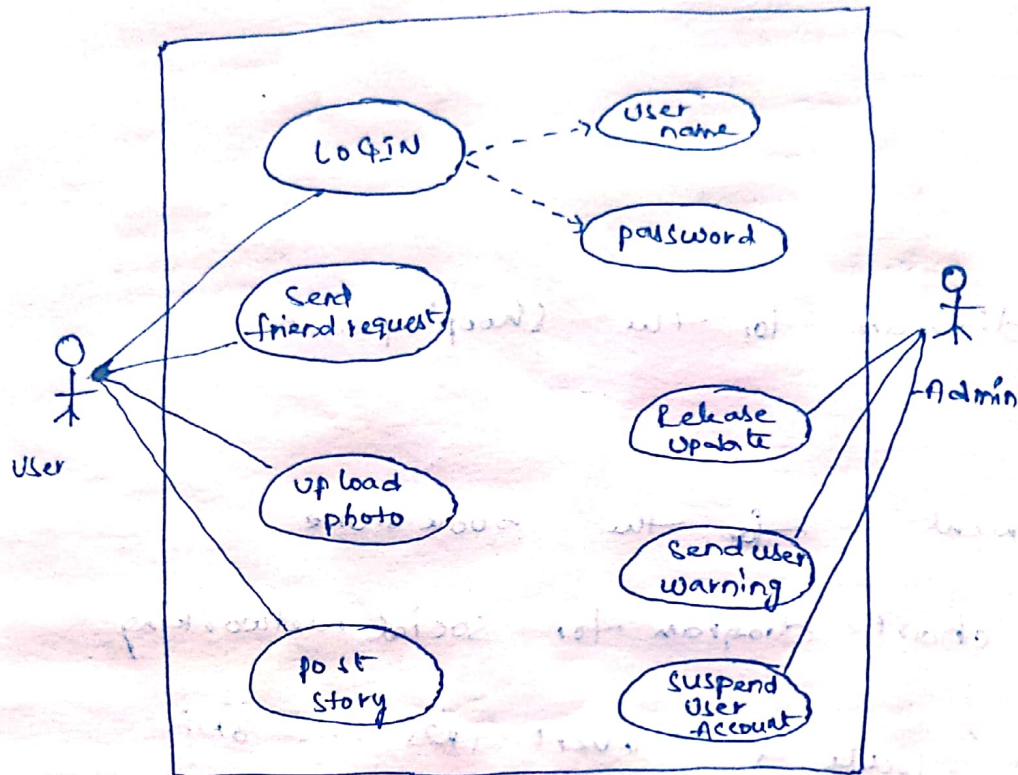 LOGIN
User
name
password
Send
friend request
User
Admin
Release
Update
upload
photo
Send user
warning
post
story
suspend
User
Account